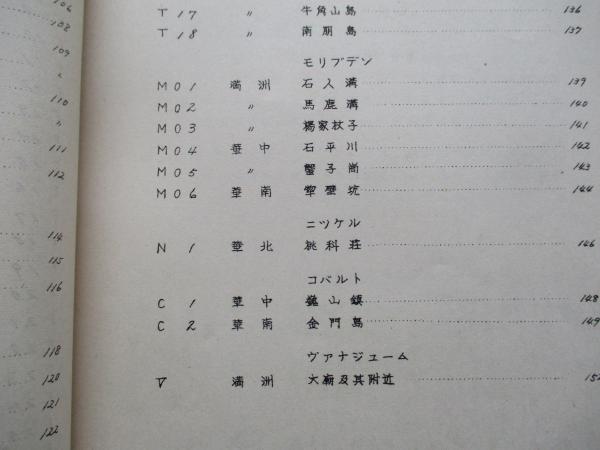 106
108
109
〃
110
〃
111
112
114
115
116
118
120
121
122
T 17 〃 牛角山島 136
T 18 〃 南朋島 137
モリブデン
MO 1 満洲 石人溝 139
MO 2 〃 馬鹿溝 140
MO 3 〃 楊家杖子 141
MO 4 華中 石平川 142
MO 5 〃 蟹子尚 143
MO 6 華南 壁坑 144
ニツケル
N 1 華北 桃科荘 146
コバルト
C 1 華中 山鎮 148
C 2 華南 金門島 149
ヴァナジューム
V 満洲 大廟及其附近 152